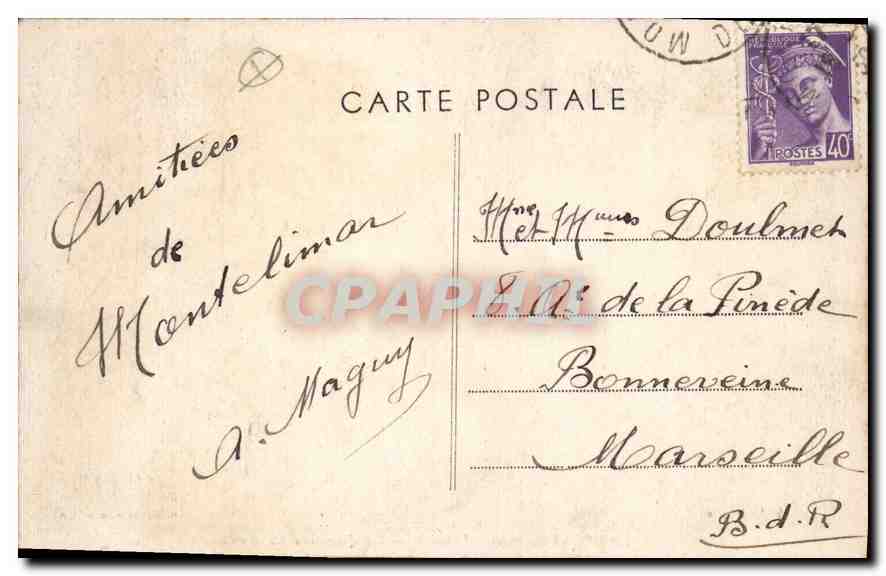 CARTE POSTALE
Amitiées
de
Montelimar
A. Maguy
RÉPUBLIQUE
FRANÇAISE
POSTES 40c
Mme et Mmes Doulmet
8. Av. de la Pinède
Bonneveine
Marseille
B.d.R
CPAPHIL